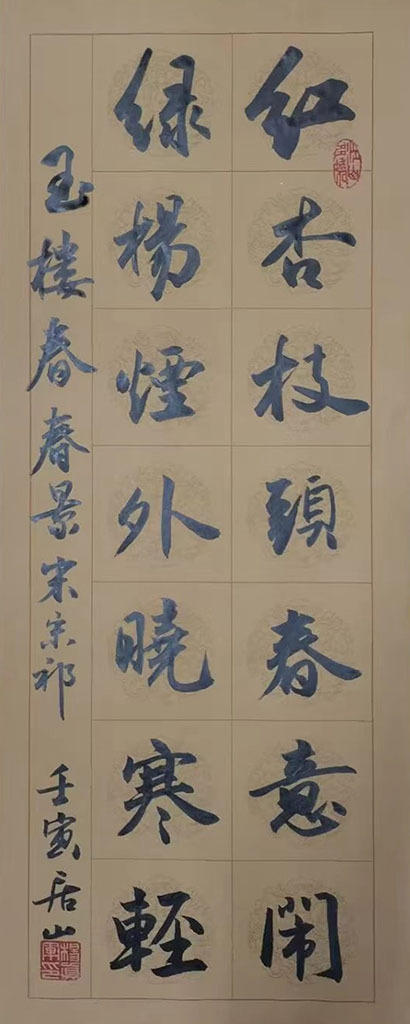 红杏枝頭春意闹
绿楊煙外曉寒輕
玉楼春春景宋宋祁 壬寅居山